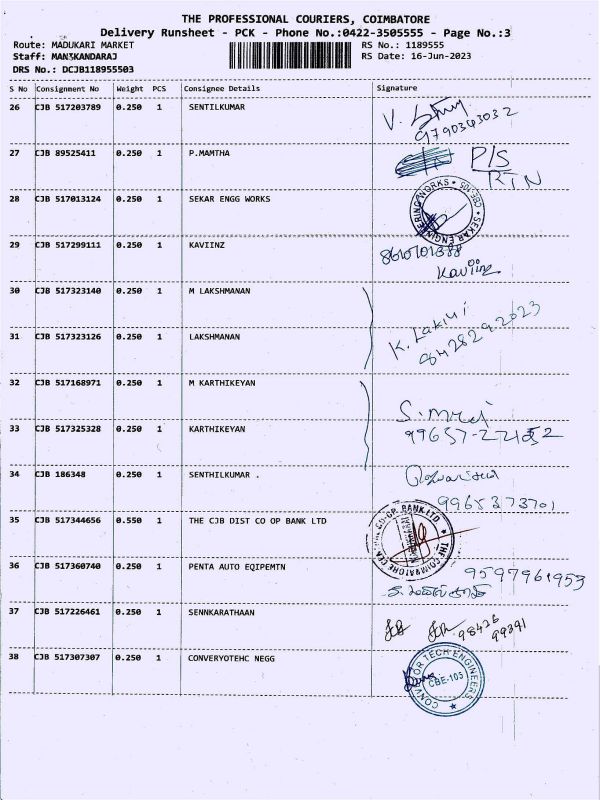 THE PROFESSIONAL COURIERS, COIMBATORE
Delivery Runsheet - PCK - Phone No.:0422-3505555 - Page No.:3
Route: MADUKARI MARKET RS No.: 1189555
Staff: MANIKANDARAJ RS Date: 16-Jun-2023
DRS No.: DCJB118955503
S No Consignment No Weight PCS Consignee Details Signature
26 CJB 517203789 0.250 1 SENTILKUMAR
9790343032
27 CJB 89525411 0.250 1 P.MAMTHA P/S
RTN
28 CJB 517013124 0.250 1 SEKAR ENGG WORKS SEKAR ENGINEERING WORKS
29 CJB 517299111 0.250 1 KAVIINZ
Kaviinz
30 CJB 517323140 0.250 1 M LAKSHMANAN
31 CJB 517323126 0.250 1 LAKSHMANAN
32 CJB 517168971 0.250 1 M KARTHIKEYAN
33 CJB 517325328 0.250 1 KARTHIKEYAN
34 CJB 186348 0.250 1 SENTHILKUMAR .
9965373701
35 CJB 517344656 0.550 1 THE CJB DIST CO OP BANK LTD
36 CJB 517360740 0.250 1 PENTA AUTO EQIPEMTN 9597961953
37 CJB 517226461 0.250 1 SENNKARATHAAN
98426
99291
38 CJB 517307307 0.250 1 CONVERYOTEHC NEGG CONVEYOR TECH ENGINEERS
CBE-103